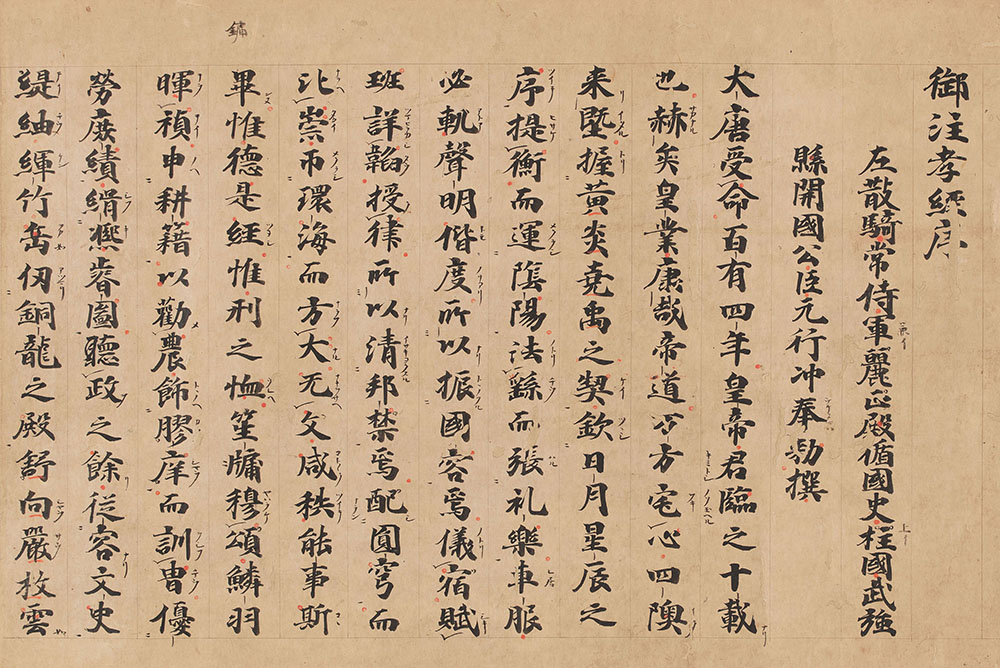 御注孝經序
左散騎常侍軍麗正殿脩國史柱國武強
縣開國公臣元行冲奉勅撰
大唐受命百有四年皇帝君臨之十載
也赫矣皇業康哉帝道万方宅心四隩
来曁握黄炎堯禹之契欽日月星辰之
序提衡而運陰陽法繇而張礼樂車服
必軌聲明偕度所以振國容焉儀宿賦
班詳韜授律所以清邦禁焉配圓穹而
比崇帀環海而方大无文咸秩能事斯
畢惟德是經惟刑之恤笙牗穆頌鱗羽
暉禎申耕籍以勸農飾膠庠而訓胄優
勞庶績緝熙睿圖聽政之餘從容文史
緹紬緷竹 仞銅龍之殿舒向嚴枚雲